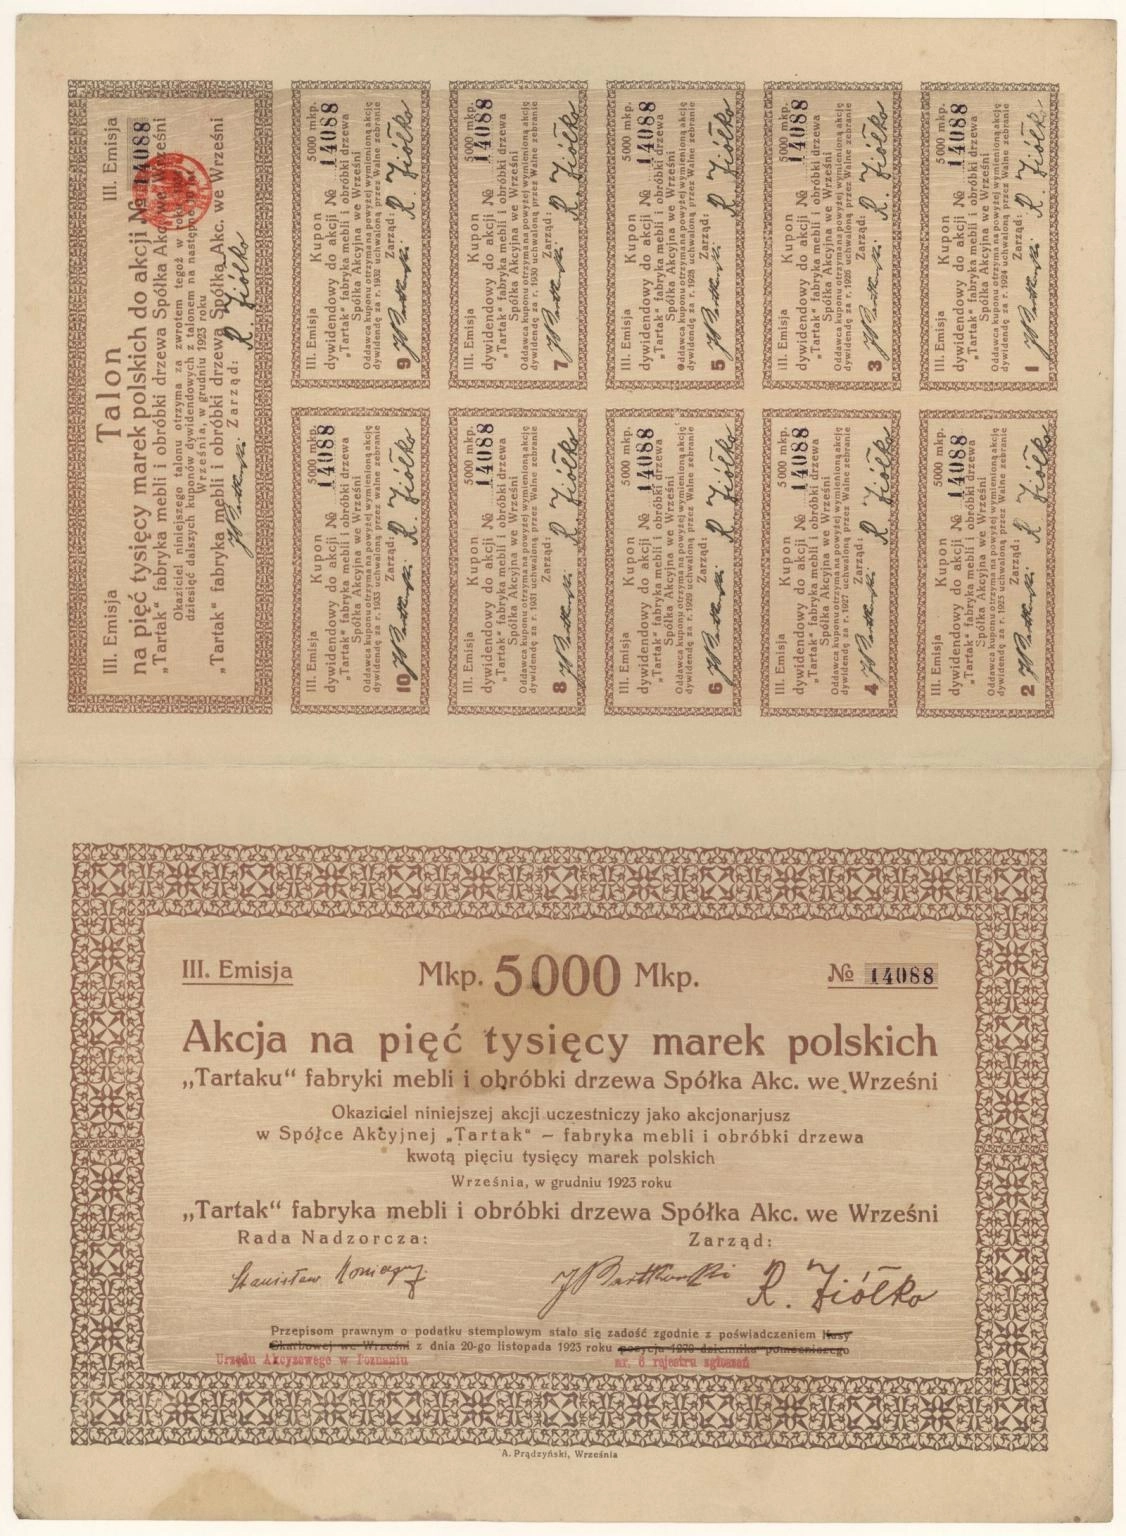 III. Emisja Talon III. Emisja
na pięć tysięcy marek polskich do akcji № 14088
„Tartak“ fabryka mebli i obróbki drzewa Spółka Akc. we Wrześni
Okaziciel niniejszego talonu otrzyma za zwrotem tegoż w
dziesięć dalszych kuponów dywidendowych z talonem na następne
Września, w grudniu 1923 roku
„Tartak“ fabryka mebli i obróbki drzewa Spółka Akc. we Wrześni
Zarząd:
R. Ziółko
III. Emisja Kupon 5000 mkp.
dywidendowy do akcji № 14088
„Tartak“ fabryka mebli i obróbki drzewa
Spółka Akcyjna we Wrześni
Oddawca kuponu otrzyma na powyżej wymienioną akcję
dywidendę za r. 1932 uchwaloną przez Walne zebranie
Zarząd:
9 R. Ziółko
III. Emisja Kupon 5000 mkp.
dywidendowy do akcji № 14088
„Tartak“ fabryka mebli i obróbki drzewa
Spółka Akcyjna we Wrześni
Oddawca kuponu otrzyma na powyżej wymienioną akcję
dywidendę za r. 1930 uchwaloną przez Walne zebranie
Zarząd:
7 R. Ziółko
III. Emisja Kupon 5000 mkp.
dywidendowy do akcji № 14088
„Tartak“ fabryka mebli i obróbki drzewa
Spółka Akcyjna we Wrześni
Oddawca kuponu otrzyma na powyżej wymienioną akcję
dywidendę za r. 1928 uchwaloną przez Walne zebranie
Zarząd:
5 R. Ziółko
III. Emisja Kupon 5000 mkp.
dywidendowy do akcji № 14088
„Tartak“ fabryka mebli i obróbki drzewa
Spółka Akcyjna we Wrześni
Oddawca kuponu otrzyma na powyżej wymienioną akcję
dywidendę za r. 1926 uchwaloną przez Walne zebranie
Zarząd:
3 R. Ziółko
III. Emisja Kupon 5000 mkp.
dywidendowy do akcji № 14088
„Tartak“ fabryka mebli i obróbki drzewa
Spółka Akcyjna we Wrześni
Oddawca kuponu otrzyma na powyżej wymienioną akcję
dywidendę za r. 1924 uchwaloną przez Walne zebranie
Zarząd:
1 R. Ziółk
III. Emisja Kupon 5000 mkp.
dywidendowy do akcji № 14088
„Tartak“ fabryka mebli i obróbki drzewa
Spółka Akcyjna we Wrześni
Oddawca kuponu otrzyma na powyżej wymienioną akcję
dywidendę za r. 1933 uchwaloną przez Walne zebranie
Zarząd:
10 R. Ziółko
III. Emisja Kupon 5000 mkp.
dywidendowy do akcji № 14088
„Tartak“ fabryka mebli i obróbki drzewa
Spółka Akcyjna we Wrześni
Oddawca kuponu otrzyma na powyżej wymienioną akcję
dywidendę za r. 1931 uchwaloną przez Walne zebranie
Zarząd:
8 R Ziółko
III. Emisja Kupon 5000 mkp.
dywidendowy do akcji № 14088
„Tartak“ fabryka mebli i obróbki drzewa
Spółka Akcyjna we Wrześni
Oddawca kuponu otrzyma na powyżej wymienioną akcję
dywidendę za r. 1929 uchwaloną przez Walne zebranie
Zarząd:
6 R Ziółko
III. Emisja Kupon 5000 mkp.
dywidendowy do akcji № 14088
„Tartak“ fabryka mebli i obróbki drzewa
Spółka Akcyjna we Wrześni
Oddawca kuponu otrzyma na powyżej wymienioną akcję
dywidendę za r. 1927 uchwaloną przez Walne zebranie
Zarząd:
4 R Ziółko
III. Emisja Kupon 5000 mkp.
dywidendowy do akcji № 14088
„Tartak“ fabryka mebli i obróbki drzewa
Spółka Akcyjna we Wrześni
Oddawca kuponu otrzyma na powyżej wymienioną akcję
dywidendę za r. 1925 uchwaloną przez Walne zebranie
Zarząd:
2 R Ziółko
III. Emisja Mkp. 5000 Mkp. № 14088
Akcja na pięć tysięcy marek polskich
„Tartaku“ fabryki mebli i obróbki drzewa Spółka Akc. we Wrześni
Okaziciel niniejszej akcji uczestniczy jako akcjonarjusz
w Spółce Akcyjnej „Tartak“ – fabryka mebli i obróbki drzewa
kwotą pięciu tysięcy marek polskich
Września, w grudniu 1923 roku
„Tartak“ fabryka mebli i obróbki drzewa Spółka Akc. we Wrześni
Rada Nadzorcza: Zarząd:
Stanisław R. Ziółko
Przepisom prawnym o podatku stemplowym stało się zadość zgodnie z poświadczeniem Kasy
Skarbowej we Wrześni z dnia 20-go listopada 1923 roku pozycja 1270 dziennika pomocniczego
Urzędu Akcyzowego w Poznaniu nr. 6 rajestru zgłoszeń
A. Prądzyński, Września